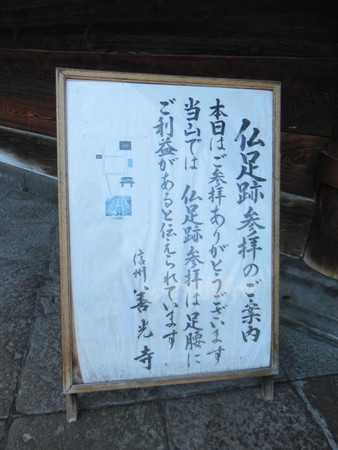 仏足跡参拝のご案内
本日はご参拝ありがとうございます
当山では 仏足跡参拝は足腰に
ご利益があると伝えられています
信州 善光寺